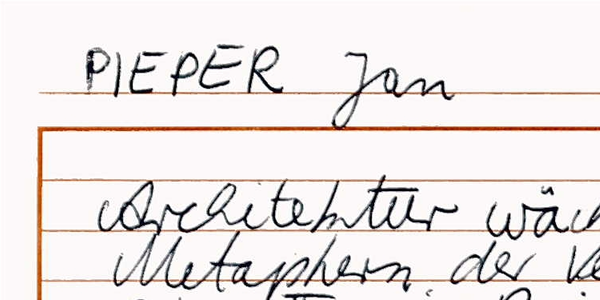 PIEPER Jan
Architektur wäch
Metaphern der Ve